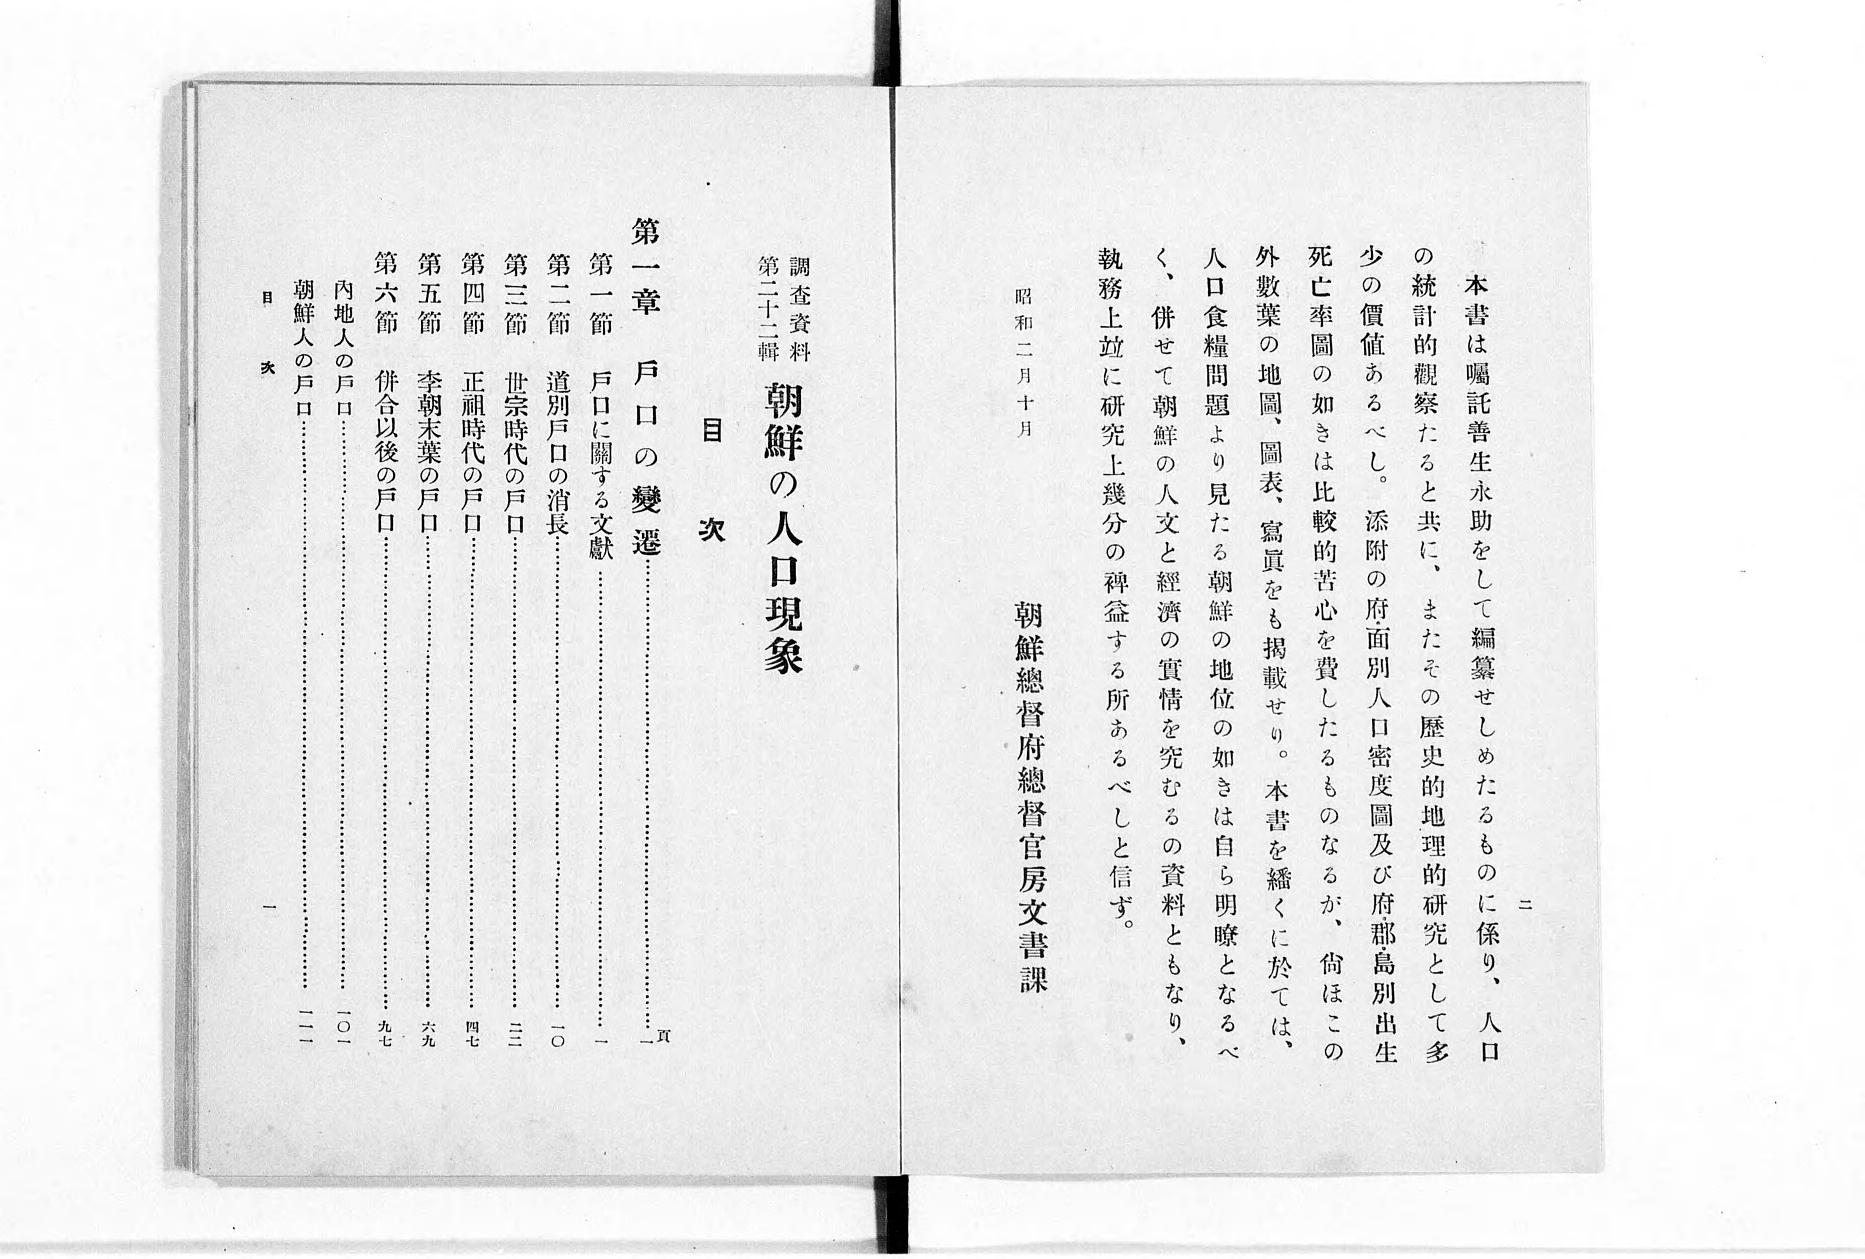 本書は囑託善生永助をして編纂せしめたるものに係り、人口
の統計的觀察たると共に、またその歷史的地理的研究として多
少の價値あるべし。添附の府・面別人口密度圖及び府・郡・島別出生
死亡率圖の如きは比較的苦心を費したるものなるが、尙ほこの
外數葉の地圖、圖表、寫眞をも揭載せり。本書を繙くに於ては、
人口食糧問題より見たる朝鮮の地位の如きは自ら明瞭となるべ
く、併せて朝鮮の人文と經濟の實情を究むるの資料ともなり、
執務上竝に硏究上幾分の裨益する所あるべしと信ず。
昭和二月十月
朝鮮總督府總督官房文書課
二
調查資料
第二十二輯
朝鮮の人口現象
目次
頁
第一章 戶口の變遷……一
第一節 戶口に關する文獻……一
第二節 道別戶口の消長……一〇
第三節 世宗時代の戶口……二二
第四節 正祖時代の戶口……四七
第五節 李朝末葉の戶口……六九
第六節 併合以後の戶口……九七
內地人の戶口……一〇一
朝鮮人の戶口……一一一
目次
一